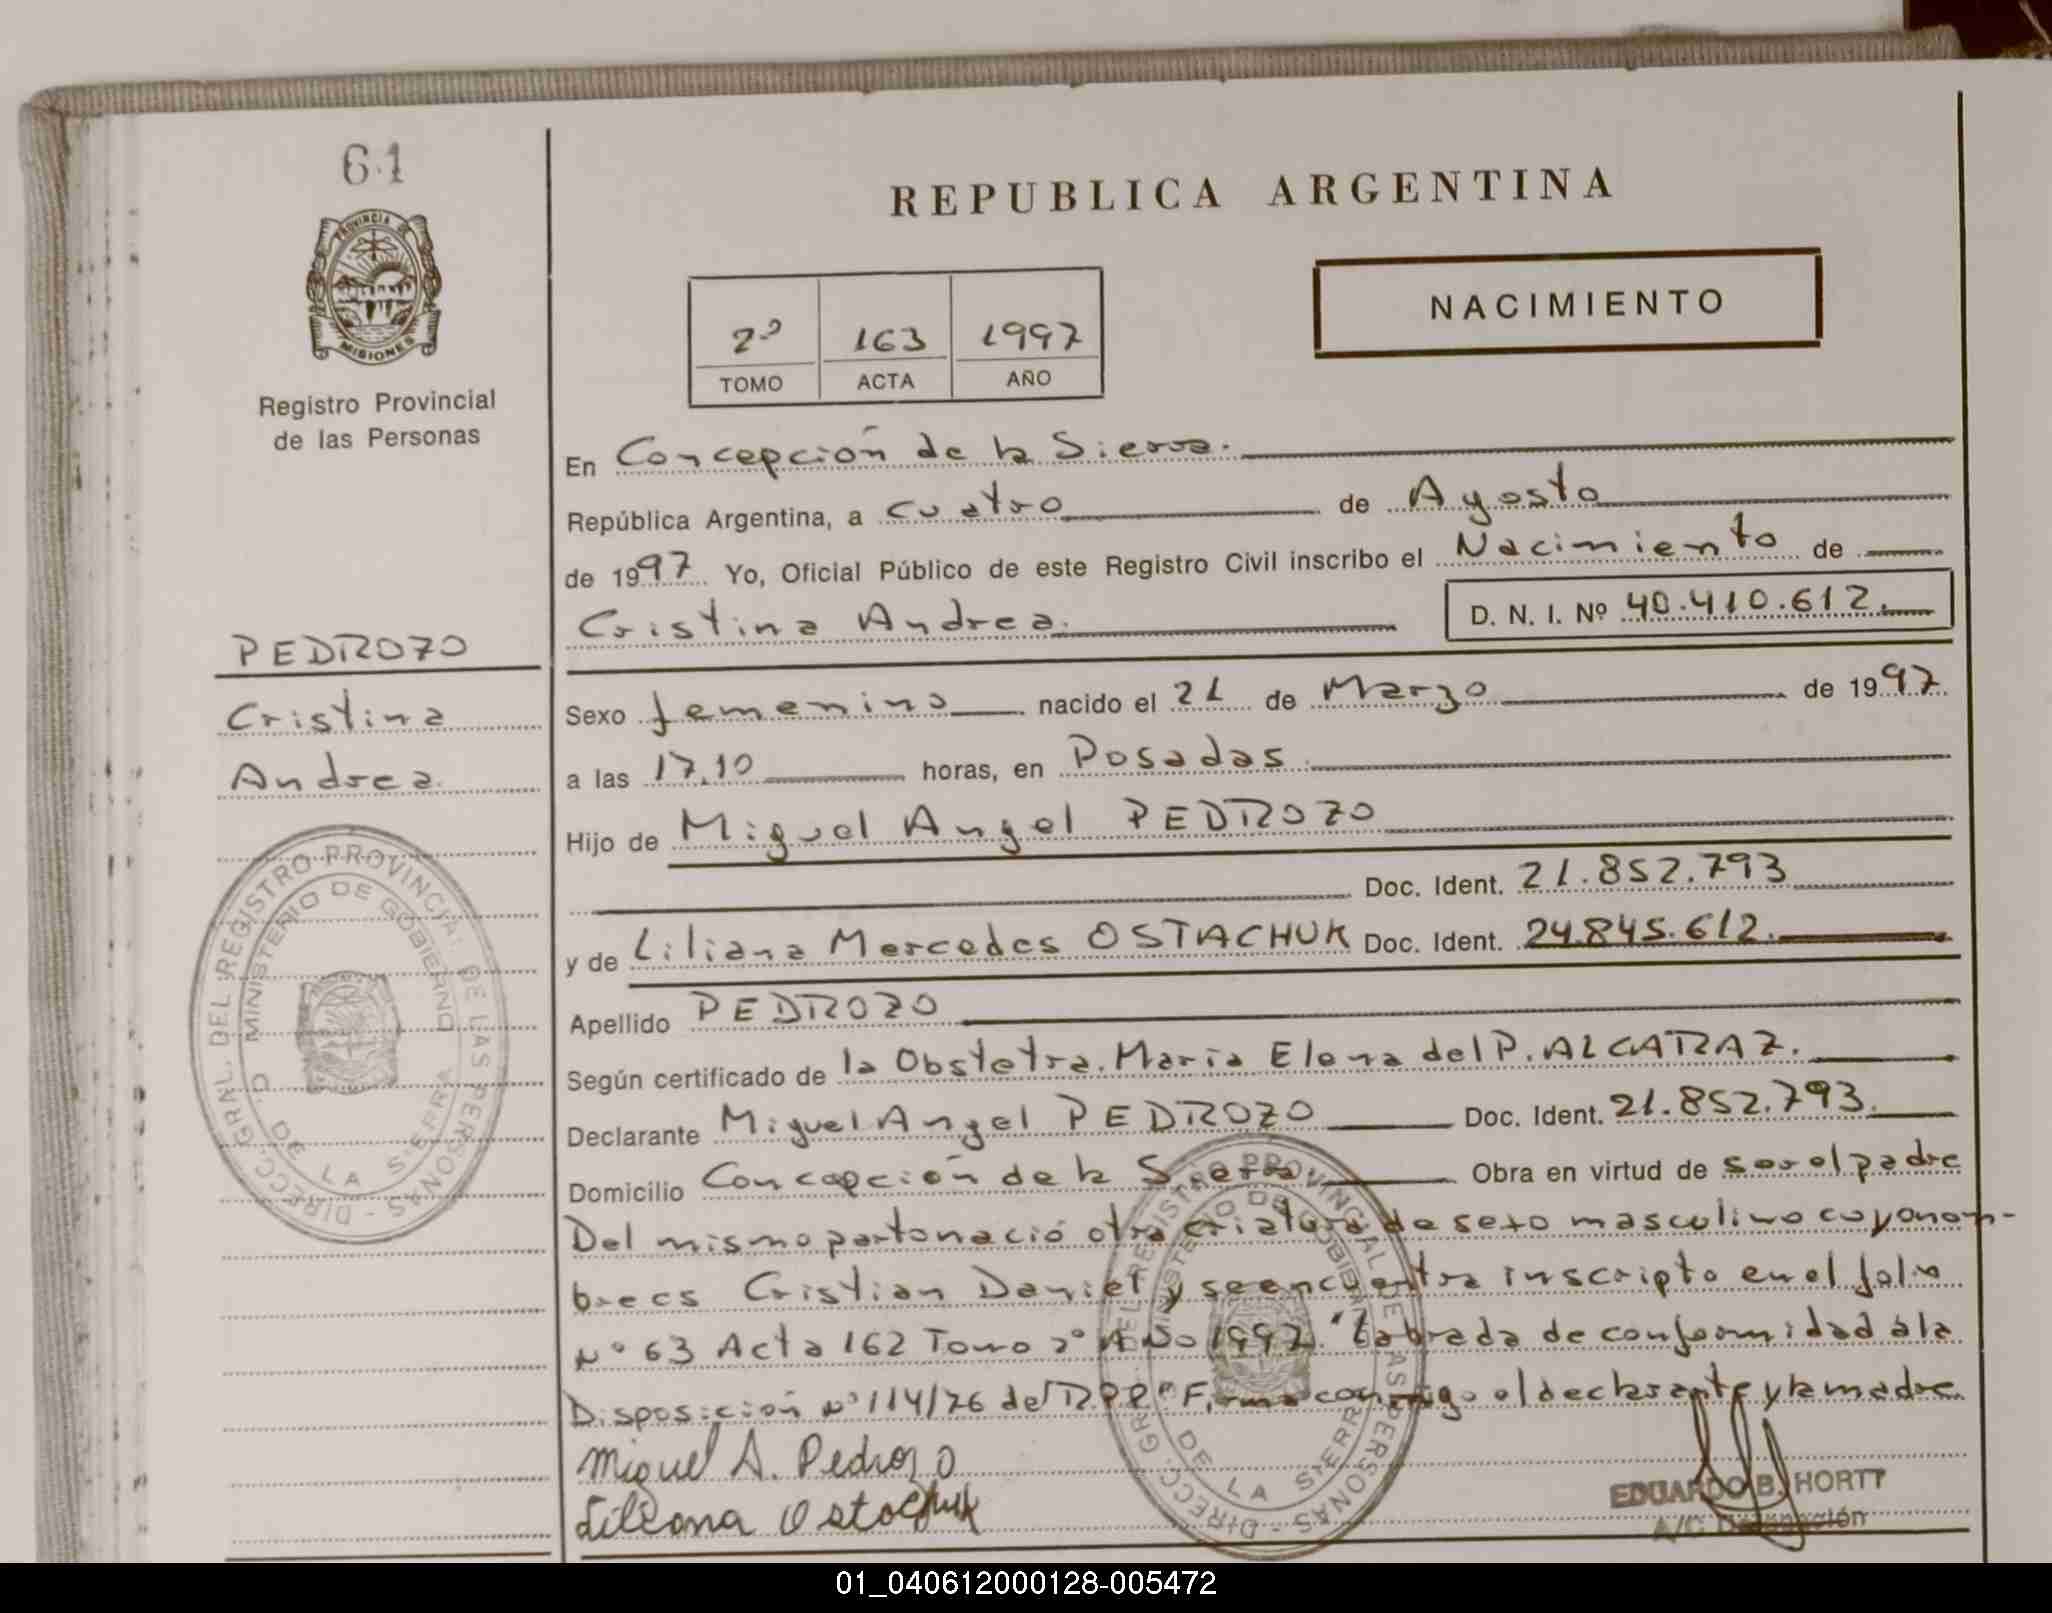 61
REPUBLICA ARGENTINA
PROVINCIA DE
MISIONES
NACIMIENTO
2º 163 1997
TOMO ACTA AÑO
Registro Provincial
de las Personas
En Concepción de la Sierra.
República Argentina, a cuatro de Agosto
de 1997 Yo, Oficial Público de este Registro Civil inscribo el Nacimiento de
Cristina Andrea. D. N. I. Nº 40.410.612.
PEDROZO
Cristina
Andrea.
Sexo femenino nacido el 21 de Marzo de 1997
a las 17.10 horas, en Posadas.
Hijo de Miguel Angel PEDROZO
Doc. Ident. 21.852.793
y de Liliana Mercedes OSTACHUK Doc. Ident. 24.845.612.
Apellido PEDROZO
Según certificado de la Obstetra. María Elena del P. ALCARAZ.
Declarante Miguel Angel PEDROZO Doc. Ident. 21.852.793.
Domicilio Concepción de la Sierra Obra en virtud de ser el padre
Del mismo parto nació otra criatura de sexo masculino cuyo nom-
brees Cristian Daniel y se encuentra inscripto en el folio
Nº 63 Acta 162 Tomo 2º Año 1997. "Labrada de conformidad a la
Disposición Nº 114/76 del R.P.P." Firma conmigo el declarante y la madre.
Miguel A. Pedrozo
Liliana Ostachuk
EDUARDO B. HORTT
A/C Delegación
DIRECC. GRAL. DEL REGISTRO PROVINCIAL DE LAS PERSONAS
MINISTERIO DE GOBIERNO
DE LA SIERRA
DIRECC. GRAL. DEL REGISTRO PROVINCIAL DE LAS PERSONAS
MINISTERIO DE GOBIERNO
DE LA SIERRA
01_040612000128-005472